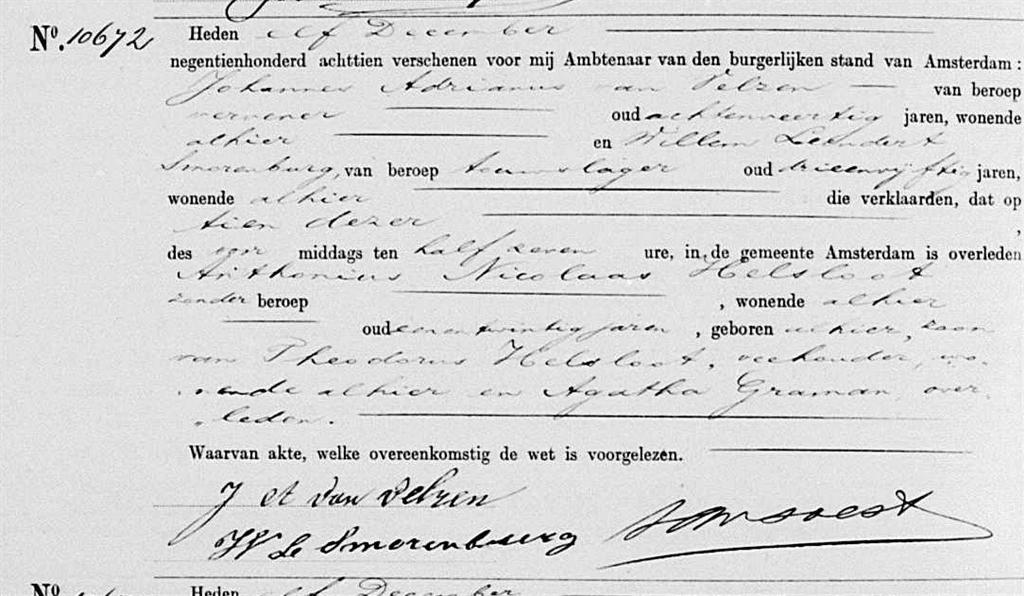 Nº. 10672 Heden elf December
negentienhonderd achttien verschenen voor mij Ambtenaar van den burgerlijken stand van Amsterdam :
Johannes Adrianus van Velzen van beroep
oud achtenveertig jaren, wonende
alhier en Willem Leendert
Smorenburg, van beroep touwslager oud drieenvijftig jaren,
wonende alhier die verklaarden, dat op
tien dezer ,
des voor middags ten half zeven ure, in de gemeente Amsterdam is overleden
Anthonius Nicolaas Helsloot
zonder beroep , wonende alhier
oud eenentwintig jaren , geboren alhier, zoon
van Theodorus Helsloot, veehouder, wo-
nende alhier en Agatha Graman, over-
leden.
Waarvan akte, welke overeenkomstig de wet is voorgelezen.
J A van Velzen
W Le Smorenburg
Nº Heden elf December